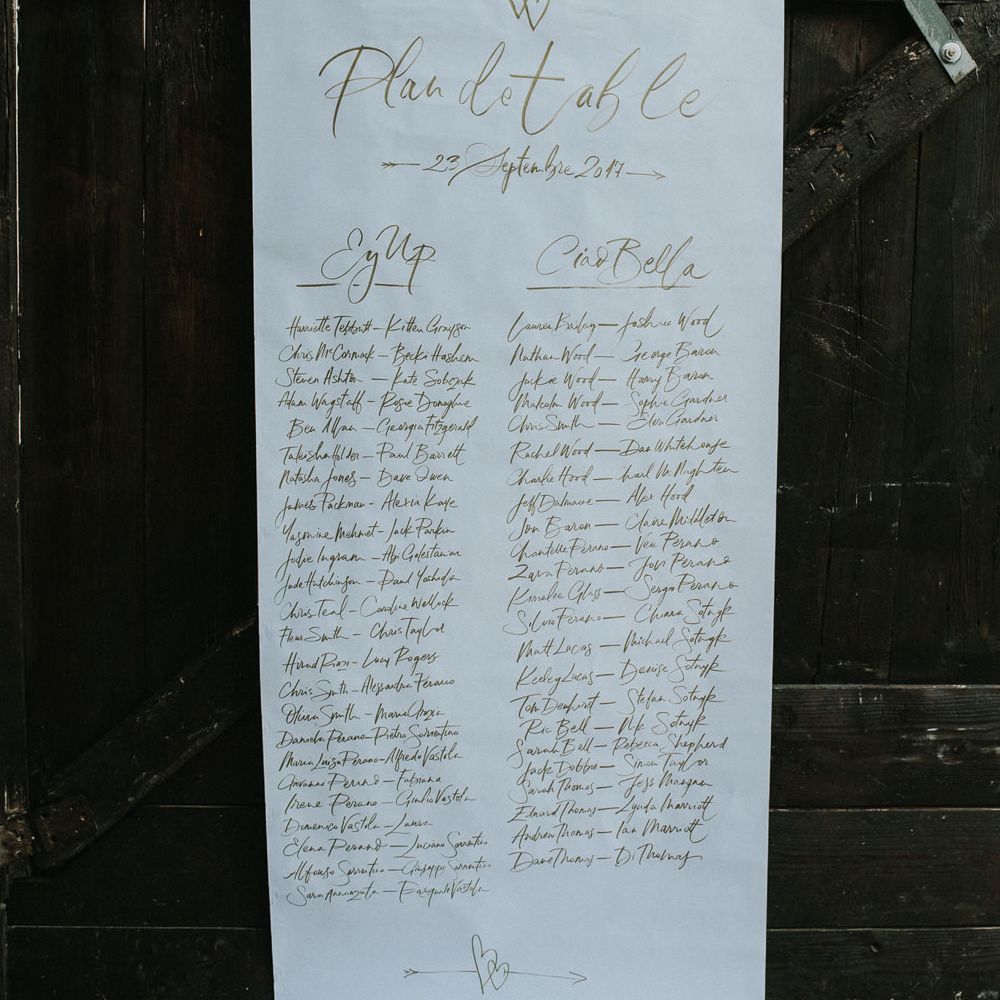 Plan de table
23 Septembre 2017
Ey Up
Harriette Tebbutt - Kitten Grayson
Chris McCormack - Becki Hashem
Steven Ashton - Kate Sobczuk
Adam Wagstaff - Rosie Donoghue
Ben Allan - Georgia Fitzgerald
Takisha Holder - Paul Barrett
Natasha Jones - Dave Owen
James Packman - Alexia Kaye
Yasmine Mehmet - Jack Parkin
Jodie Ingram - Abi Golestanian
Jade Hutchinson - Paul Yoshida
Chris Teal - Caroline Wellock
Fleur Smith - Chris Taylor
Lucy Rogers
Chris Smith - Alessandra Perano
Olivia Smith - Maria Grazia
Daniela Perano - Pietro Sorrentino
Maria Luisa Perano - Alfredo Vastola
Giovanni Perano - Fabiana
Irene Perano - Giulio Vastola
Domenico Vastola - Laura
Elena Perano - Luciano Sorrentino
Alfonso Sorrentino - Giuseppe Sorrentino
Sara Annunziata - Pasquale Vastola
Ciao Bella
Lauren Bailey - Joshua Wood
Nathan Wood - George Baron
Jackie Wood - Harry Baron
Malcolm Wood - Sophie Gardner
Chris Smith - Elen Gardner
Rachel Wood - Dan Whitehouse
Charlie Hood - Carl McNaghten
Jeff Dalmaine - Alex Hood
Jon Baron - Claire Middleton
Chantelle Perano - Ven Perano
Zara Perano - Jon Perano
Kimalee Glass - Sergio Perano
Silvio Perano - Chiara Sotnyk
Matt Lucas - Michael Sotnyk
Keeley Lucas - Denise Sotnyk
Tom Dewhurst - Stefan Sotnyk
Ric Bell - Nik Sotnyk
Sarah Bell - Rebecca Shepherd
Jack Dobbie - Simon Taylor
Sarah Thomas - Jess Mangan
Edward Thomas - Lynda Marriott
Andrew Thomas - Ian Marriott
Dane Thomas - Di Thomas